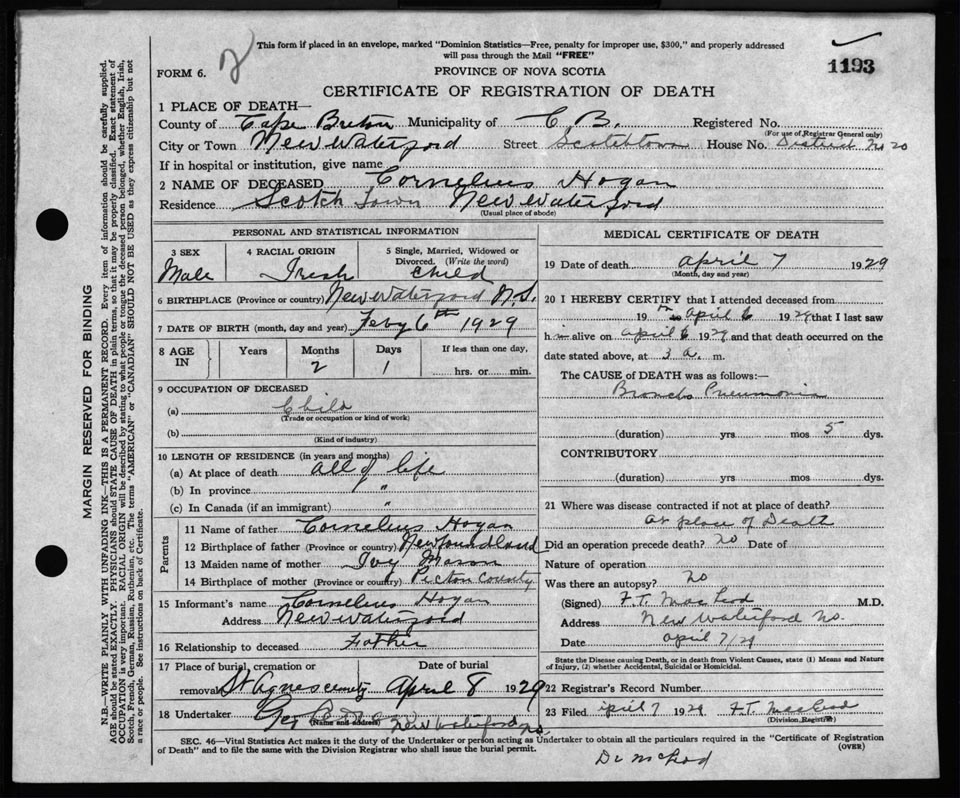 This form if placed in an envelope, marked "Dominion Statistics—Free, penalty for improper use, $300," and properly addressed
will pass through the Mail "FREE"
2
1193
FORM 6.
PROVINCE OF NOVA SCOTIA
CERTIFICATE OF REGISTRATION OF DEATH
1 PLACE OF DEATH—
County of Cape Breton Municipality of C. B. Registered No.
(For use of Registrar General only)
City or Town New Waterford Street Scotchtown House No. District No 20
If in hospital or institution, give name
2 NAME OF DECEASED Cornelius Hogan
Residence Scotch Town New Waterford
(Usual place of abode)
PERSONAL AND STATISTICAL INFORMATION
3 SEX Male
4 RACIAL ORIGIN Irish
5 Single, Married, Widowed or
Divorced. (Write the word)
Child
6 BIRTHPLACE (Province or country) New Waterford N.S.
7 DATE OF BIRTH (month, day and year) Feby 6th 1929
8 AGE IN Years Months Days If less than one day,
2 1 hrs. or min.
9 OCCUPATION OF DECEASED
(a) Child
(Trade or occupation or kind of work)
(b)
(Kind of industry)
10 LENGTH OF RESIDENCE (in years and months)
(a) At place of death all of life
(b) In province "
(c) In Canada (if an immigrant) "
Parents
11 Name of father Cornelius Hogan
12 Birthplace of father (Province or country) Newfoundland
13 Maiden name of mother Ivy Mason
14 Birthplace of mother (Province or country) Pictou County
15 Informant's name Cornelius Hogan
Address New Waterford
16 Relationship to deceased Father
17 Place of burial, cremation or removal St Agnes
Date of burial April 8 1929
18 Undertaker Geo
(Name and address) New Waterford NS
MEDICAL CERTIFICATE OF DEATH
19 Date of death april 7 1929
(Month, day and year)
20 I HEREBY CERTIFY that I attended deceased from
19 to april 6 1929 that I last saw
him alive on april 6 1929 and that death occurred on the
date stated above, at 3 a. m.
The CAUSE of DEATH was as follows:—
Broncho Pneumonia
(duration) yrs. mos 5 dys.
CONTRIBUTORY
(duration) yrs. mos dys.
21 Where was disease contracted if not at place of death?
At place of Death
Did an operation precede death? no Date of
Nature of operation
Was there an autopsy? no
(Signed) F.T. MacLeod M.D.
Address New Waterford NS.
Date april 7/29
State the Disease causing Death, or in death from Violent Causes, state (1) Means and Nature
of Injury, (2) whether Accidental, Suicidal or Homicidal.
22 Registrar's Record Number
23 Filed april 7 1929 F.T. MacLeod
(Division Registrar)
SEC. 46—Vital Statistics Act makes it the duty of the Undertaker or person acting as Undertaker to obtain all the particulars required in the "Certificate of Registration
of Death" and to file the same with the Division Registrar who shall issue the burial permit.
(OVER)
Dr McLeod
MARGIN RESERVED FOR BINDING
N.B.—WRITE PLAINLY WITH UNFADING INK—THIS IS A PERMANENT RECORD. Every item of information should be carefully supplied.
AGE should be stated EXACTLY. PHYSICIANS should STATE CAUSE OF DEATH in plain terms, so that it may be properly classified. Exact statement of
OCCUPATION is very important. RACIAL ORIGIN will be described by stating to what people or tongue the deceased person belonged, whether English, Irish,
Scotch, French, German, Russian, Ruthenian, etc. The terms "AMERICAN" or "CANADIAN" SHOULD NOT BE USED as they express citizenship but not
a race or people. See instructions on back of Certificate.